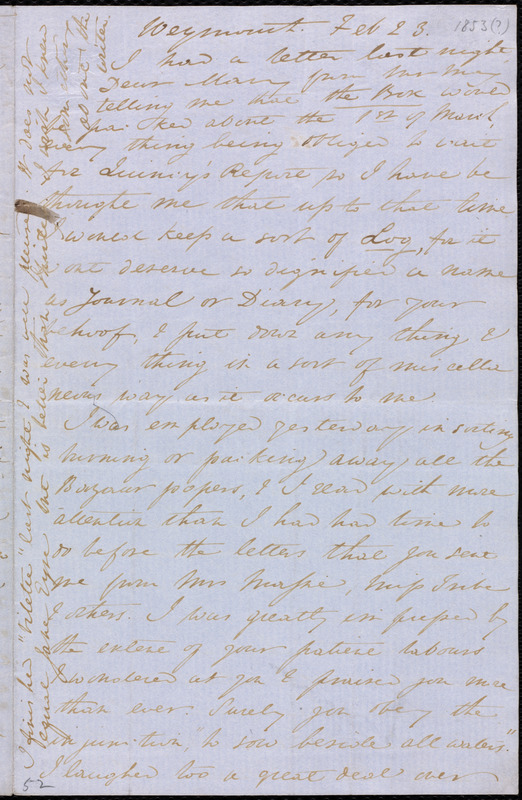 Weymouth. Feb 23.
1853(?)
I had a letter last night
Dear Mary from Mr May
telling me that the Box would
packed about the 1st of March,
every thing being obliged to wait
for Quincy's Report so I have be
thought me that up to that time
I would keep a sort of Log, for it
wont deserve so dignified a name
as Journal or Diary, for your
behoof, & put down any thing &
every thing in a sort of miscella
neous way as it occurs to me.
I was employed yesterday in sorting
burning or packing away all the
Bazaar papers, & I read with more
attention than I had had time to
do before the letters that you sent
me from Mrs Massie, Miss
& others. I was greatly impressed by
the extent of your patient labours
& wondered at you & praised you more
than ever. Surely you obey the
injunction, "to sow beside all waters."
I laughed too a great deal over
52
I finished "Villette" last night & was
It does not
equal Jane Eyre but is better than Shirley
the
writer